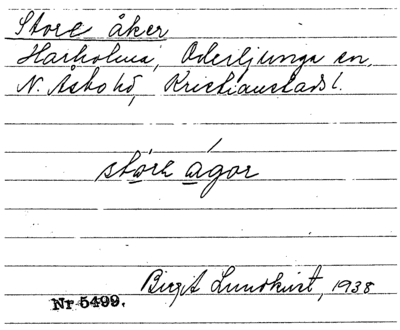 Store åker
Harholma, Oderljunga sn,
N. Åsbo hd, Kristianstads l.
støra ågor
Birgit Lundkvist, 1938
Nr 5499.